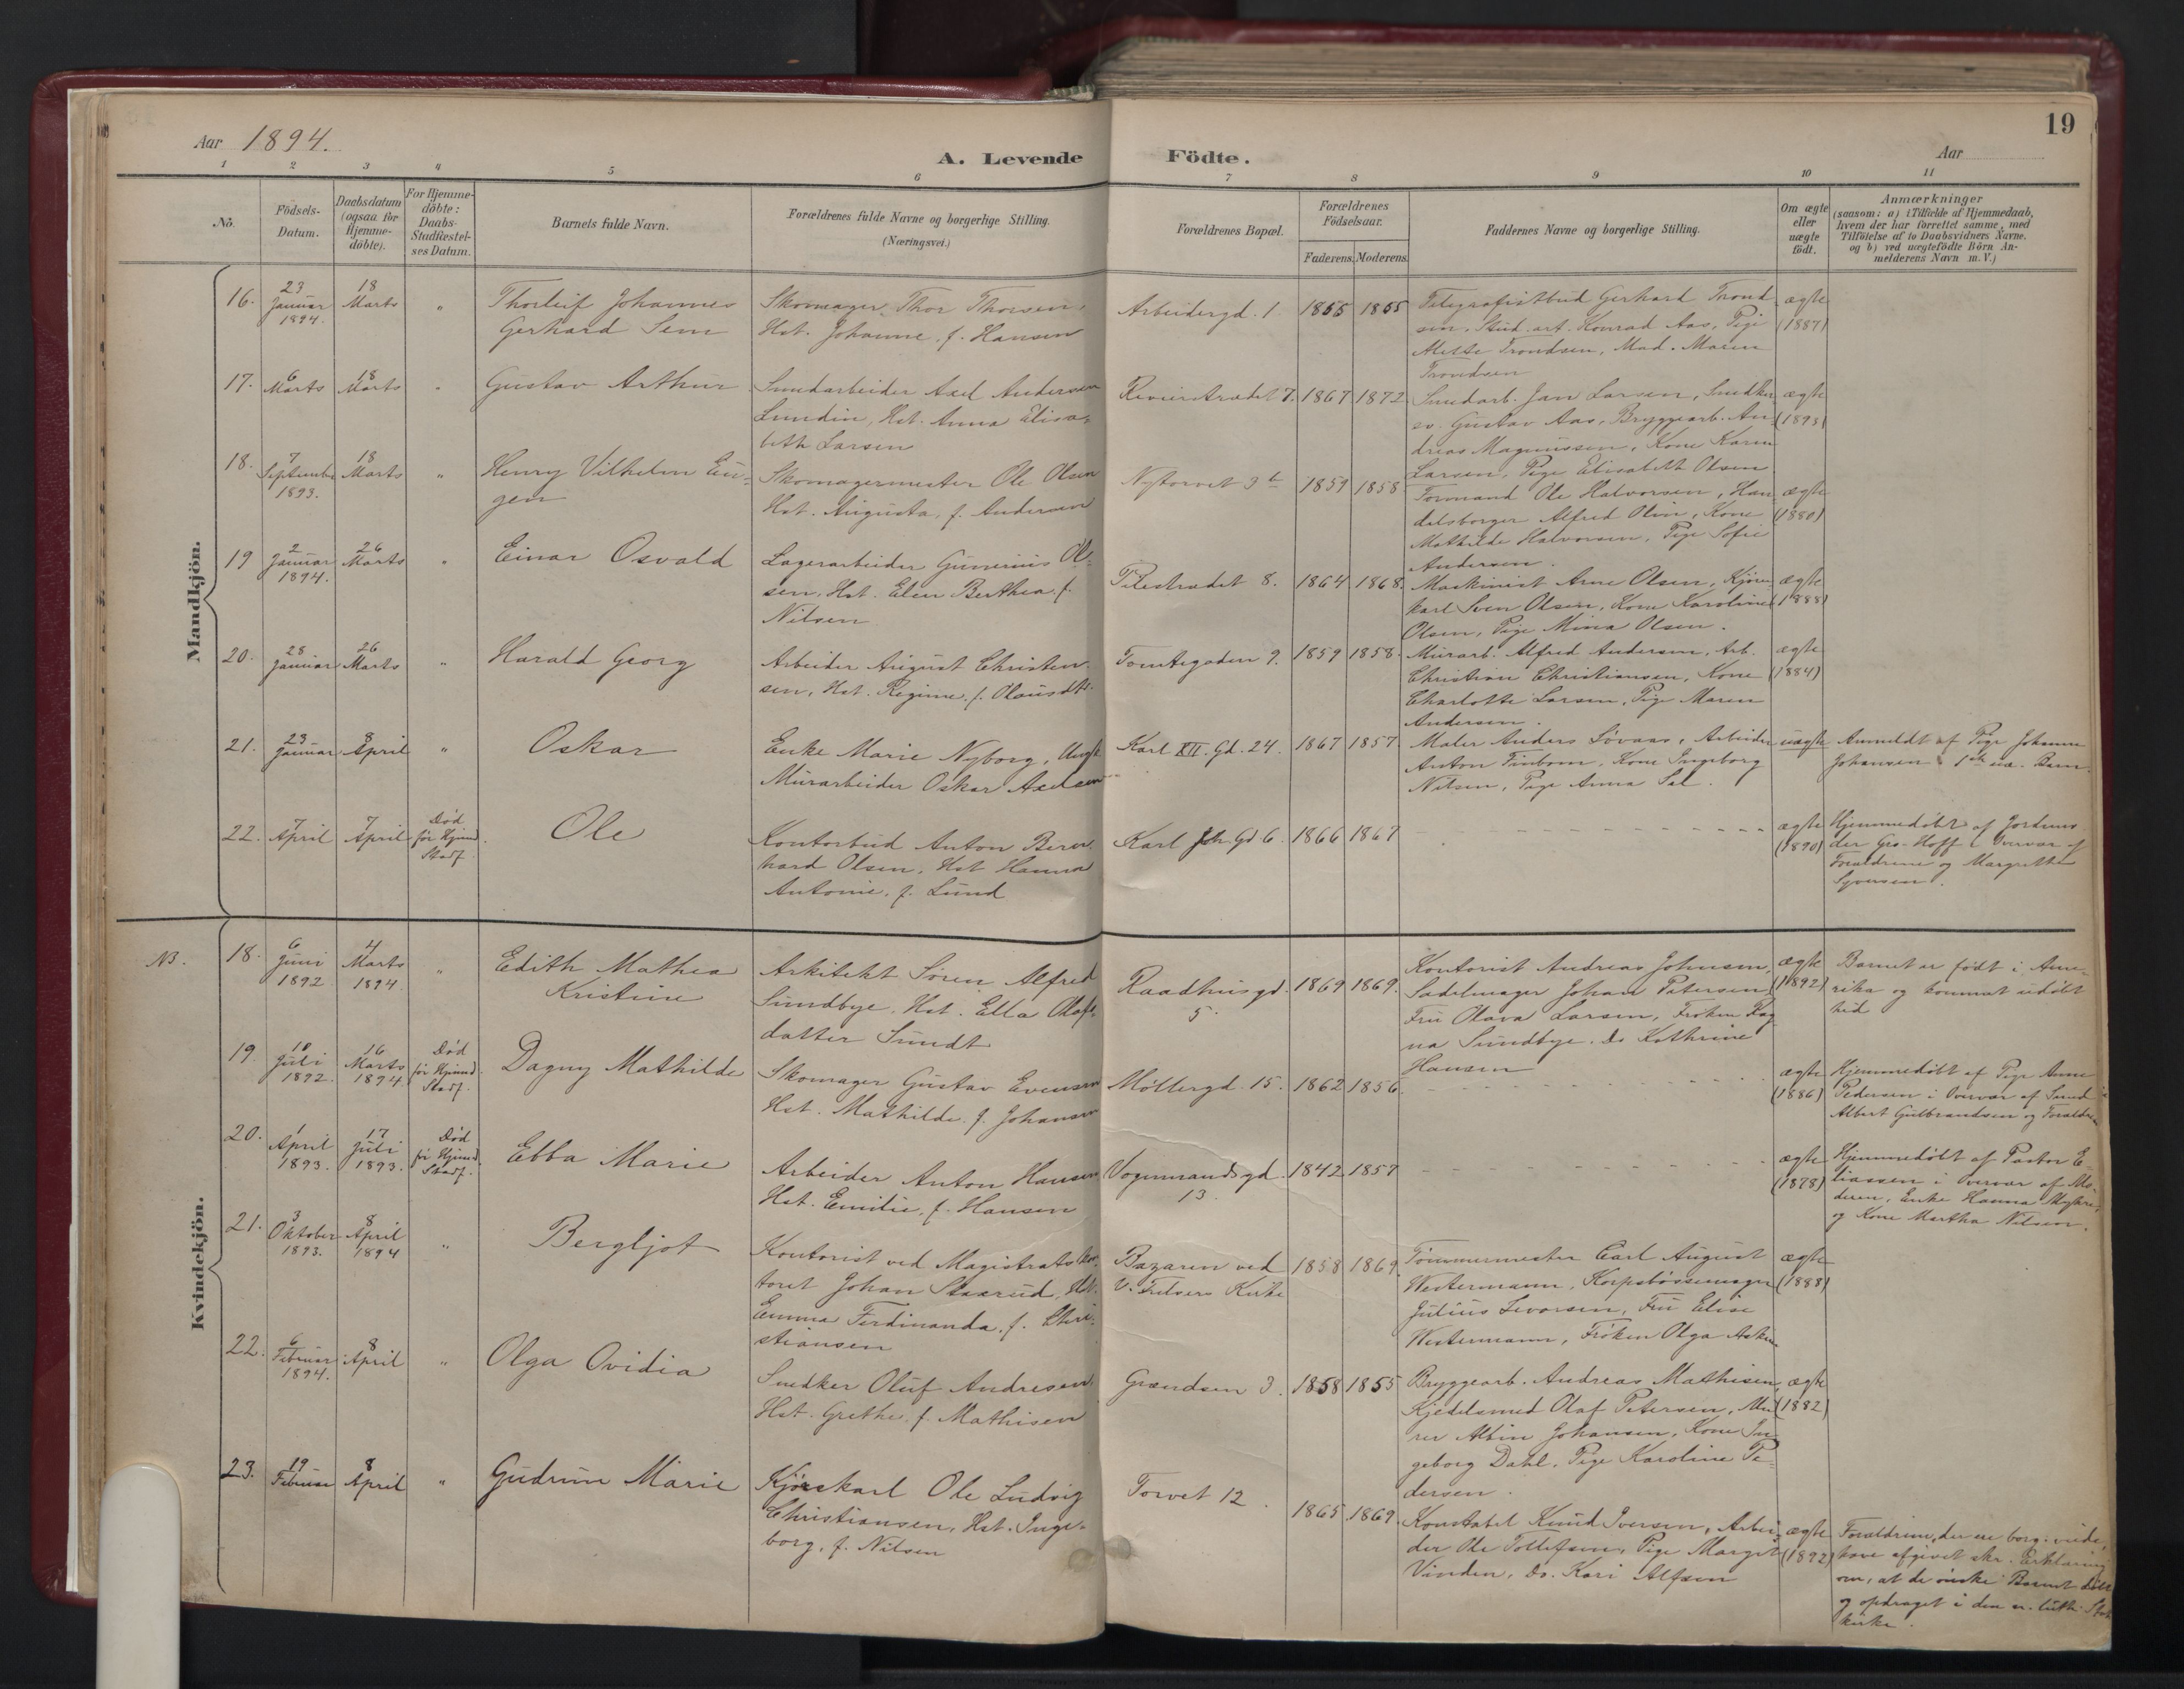 Aar 1894.
A. Levende Födte.
19
Aar
1 2 3 4 5 6 7 8 9 10 11
No.
Födsels-
Datum.
Daabsdatum
(ogsaa for
Hjemme-
döbte).
For Hjemme-
döbte:
Daabs-
Stadfæstel-
ses Datum.
Barnets fulde Navn.
Forældrenes fulde Navne og borgerlige Stilling.
(Næringsvei.)
Forældrenes Bopæl.
Forældrenes
Födselsaar.
Faderens. Moderens.
Faddernes Navne og borgerlige Stilling.
Om ægte
eller
uægte
födt.
Anmærkninger
(saasom: a) i Tilfælde af Hjemmedaab,
hvem der har forrettet samme, med
Tilföielse af to Daabsvidners Navne,
og b) ved uægtefödte Börn An-
melderens Navn m. V.)
Mandkjön.
16.
23
Januar
1894.
18
Marts
"
Thorleif Johannes
Gerhard Sem
Skomager Thor Thorsen,
Hst. Johanne, f. Hansen
Arbeidergd. 1
1855 1865
Telegrafistbud Gerhard Trond
sen, Stud. art. Konrad Aas, Pige
Mette Trondsen, Mad. Maren
Trondsen
ægte
(1887)
17.
6
Marts
18
Marts
"
Gustav Arthur
Smedarbeider Axel Andersen
Lundin, Hst. Anna Elisa-
beth Larsen
Revierstrædet 7.
1867 1872
Smedarb. Jan Larsen, Snedker
sv. Gustav Aas, Bryggearb. An-
dreas Magnussen, Kone Karen
Larsen, Pige Elisabeth Olsen
ægte
(1893)
18.
7
September
1893.
18
Marts
"
Henry Vilhelm Eu-
gen
Skomagermester Ole Olsen
Hst. Augusta, f. Andersen
Nytorvet 3
1859 1858
Formand Ole Halvorsen, Han
delsborger Alfred Olsen, Kone
Mathilde Halvorsen, Pige Sofie
Andersen.
ægte
(1880)
19
2
Januar
1894.
26
Marts
"
Einar Osvald
Lagerarbeider Gunerius Ol-
sen, Hst. Elen Berthea, f.
Nilsen
Pilestrædet 8.
1864 1868.
Maskinist Arne Olsen, Kjøre
karl Sven Olsen, Kone Karoline
Olsen, Pige Mina Olsen.
ægte
(1888)
20.
28
Januar
26
Marts
"
Harald Georg
Arbeider August Christen-
sen, Hst. Regine, f. Olausdtr.
Tomtegaden 9.
1859 1858.
Murarb. Alfred Andersen, Arb.
Christian Christiansen, Kone
Charlotte Larsen, Pige Maren
Andersen.
ægte
(1884)
21.
23
Januar
8
April
"
Oskar
Enke Marie Nyborg, Ungk.
Murarbeider Oskar Axelsen
Karl XII. Gd. 24.
1867 1857.
Maler Anders Løvaas, Arbeider
Anton Finbom, Kone Ingeborg
Nilsen, Pige Anna Sal.
uægte
Anmeldt af Pige Johanne
Johansen 1ste uæ. Barn.
22.
7
April
7
April
Død
før Hjemd.
Stadf.
Ole
Kontorbud Anton Bern-
hard Olsen, Hst Hanna
Antonie, f. Lund
Karl Joh. Gd 6.
1866 1867
ægte
(1890)
Hjemmedøbt af Jordmo
der Gro. Hoff i Overvær af
Forældrene og Margrethe
Syversen.
Kvindekjön.
NB.
18.
6
Juni
1892
4
Marts
1894
"
Edith Mathea
Kristine
Arkitekt Søren Alfred
Sundbye, Hst. Ella Olafs-
datter Sundt
Raadhusgd.
5.
1869 1869.
Kontorist Andreas Johnsen,
Sadelmager Johan Petersen,
Fru Olava Larsen, Frøken Rag
na Sundbye. Do Kathrine
Hansen
ægte
(1892)
Barnet er født i Ame-
rika og kommet udøbt
hid
19.
18
Juli
1892.
16
Marts
1894.
Død
før Hjemd.
Stadf.
Dagny Mathilde
Skomager Gustav Evensen
Hst. Mathilde, f. Johansen
Møllergd. 15.
1862 1856.
ægte
(1886)
Hjemmedøbt af Pige Anne
Pedersen i Overvær af Smed
Albert Gulbrandsen og Forældre
20.
1
April
1893.
17
Juli
1893.
Død
før Hjemd.
Stadf.
Ebba Marie
Arbeider Anton Hansen
Hst. Emilie, f. Hansen
Vognmandsgd.
13.
1842 1857
ægte
(1878)
Hjemmedøbt af Pastor E-
liassen i Overvær af Mo-
deren, Enke Hanna
og Kone Martha Nilsen.
21.
3
Oktober
1893.
8
April
1894
"
Bergljot
Kontorist ved Magistratskon-
toret Johan Staarud, Hst.
Emma Ferdinanda, f. Chri-
stiansen
Bazaren ved
V. Frelsers Kirke
1858 1869.
Tømmermester Carl August
Westermann, Korpsbøssemager
Julius Sevorsen, Fru Elise
Westermann, Frøken Olga Asker
ægte
(1888)
22.
6
Februar
1894.
8
April
"
Olga Ovidia
Snedker Oluf Andresen.
Hst. Grethe, f. Mathisen
Grændsen 3.
1858 1855
Bryggearb. Andreas Mathisen,
Kjedelsmed Olaf Petersen, Mu
rer Albin Johansen, Kone In-
geborg Dahl, Pige Karoline Pe-
dersen.
ægte
(1882)
23.
19
Februar
8
April
"
Gudrun Marie
Kjørekarl Ole Ludvig
Christiansen, Hst. Inge-
borg, f. Nilsen
Torvet 12.
1865 1869.
Konstabel Knud Iversen, Arbei
der Ole Tollefsen, Pige Margit
Vinden, Do. Kari Alfsen
ægte
(1892)
Forældrene, der ere borg. viede,
have afgivet skr. Erklæring
om, at de ønske Barnet døbt
og opdraget i den ev. luth. Stats
kirke.